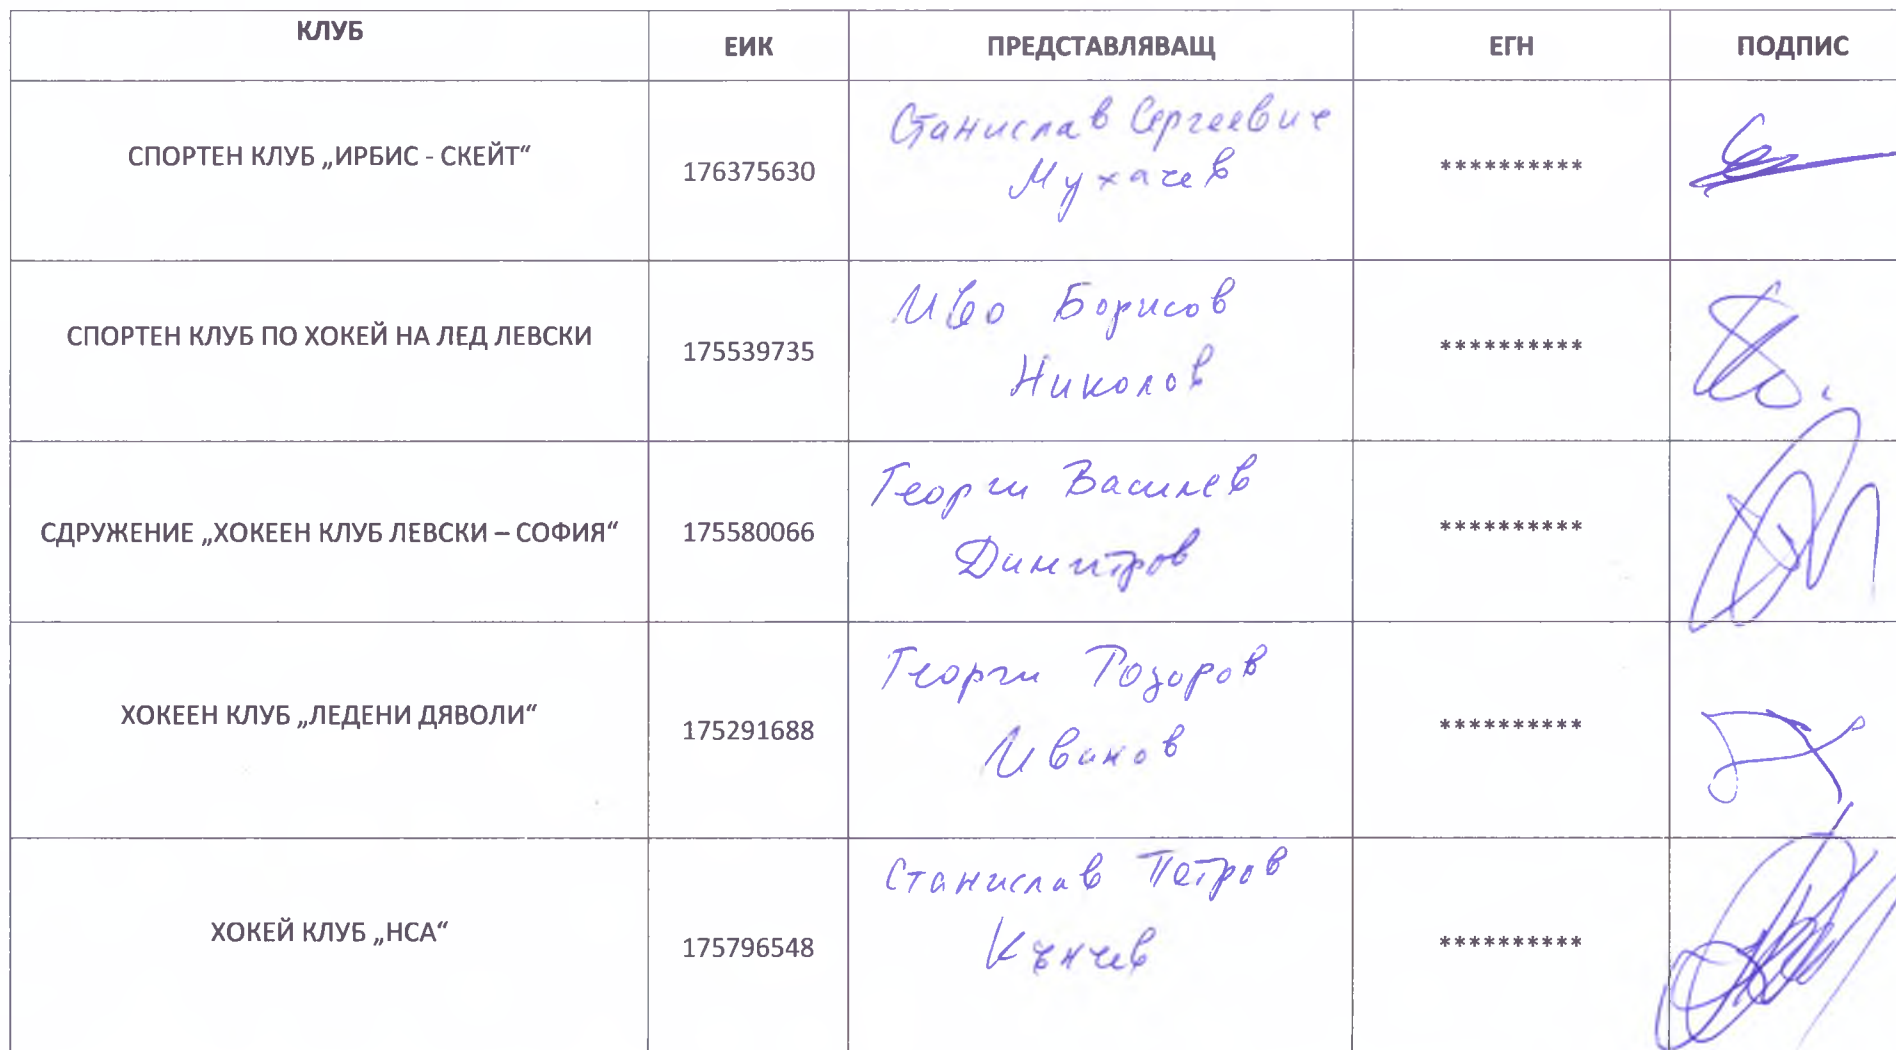 КЛУБ ЕИК ПРЕДСТАВЛЯВАЩ ЕГН ПОДПИС
СПОРТЕН КЛУБ „ИРБИС - СКЕЙТ“ 176375630 Станислав Сергеевич
Мухачев **********
СПОРТЕН КЛУБ ПО ХОКЕЙ НА ЛЕД ЛЕВСКИ 175539735 Иво Борисов
Николов **********
СДРУЖЕНИЕ „ХОКЕЕН КЛУБ ЛЕВСКИ – СОФИЯ“ 175580066 Георги Василев
Димитров **********
ХОКЕЕН КЛУБ „ЛЕДЕНИ ДЯВОЛИ“ 175291688 Георги
Иванов **********
ХОКЕЙ КЛУБ „НСА“ 175796548 Станислав Петров
Кънчев **********